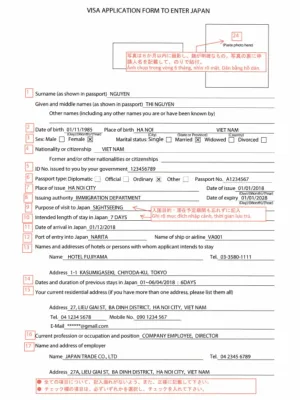 VISA APPLICATION FORM TO ENTER JAPAN
(Paste photo here)
Surname (as shown in passport) NGUYEN
Given and middle names (as shown in passport) THI NGUYEN
Other names (including any other names you are or have been known by)
Date of birth 01/11/1985 Place of birth HA NOI VIET NAM
(Day)/(Month)/(Year) (City) (State or Province) (Country)
Sex: Male Female Marital status: Single Married Widowed Divorced
Nationality or citizenship VIET NAM
Former and/or other nationalities or citizenships
ID No. issued to you by your government 123456789
Passport type: Diplomatic Official Ordinary Other Passport No. A1234567
Place of issue HA NOI CITY Date of issue 01/01/2018
(Day)/(Month)/(Year)
Issuing authority IMMIGRATION DEPARTMENT Date of expiry 01/01/2028
Purpose of visit to Japan SIGHTSEEING
Intended length of stay in Japan 7 DAYS
Date of arrival in Japan 01/12/2018
Port of entry into Japan NARITA Name of ship or airline VA001
Names and addresses of hotels or persons with whom applicant intends to stay
Name HOTEL FUJIYAMA Tel. 03-3580-1111
Address 1-1 KASUMIGASEKI, CHIYODA-KU, TOKYO
Dates and duration of previous stays in Japan 01~06/04/2018 : 6DAYS
Your current residential address (if you have more than one address, please list them all)
Address 27, LIEU GIAI ST, BA DINH DISTRICT, HA NOI CITY, VIET NAM
Tel. 04 1234 5678 Mobile No. 090 1234 567
E-Mail ******@gmail.com
Current profession or occupation and position COMPANY EMPLOYEE, DIRECTOR
Name and address of employer
Name JAPAN TRADE CO., LTD Tel. 04 2345 6789
Address 27A, LIEU GIAI ST, BA DINH DISTRICT, HA NOI CITY, VIET NAM